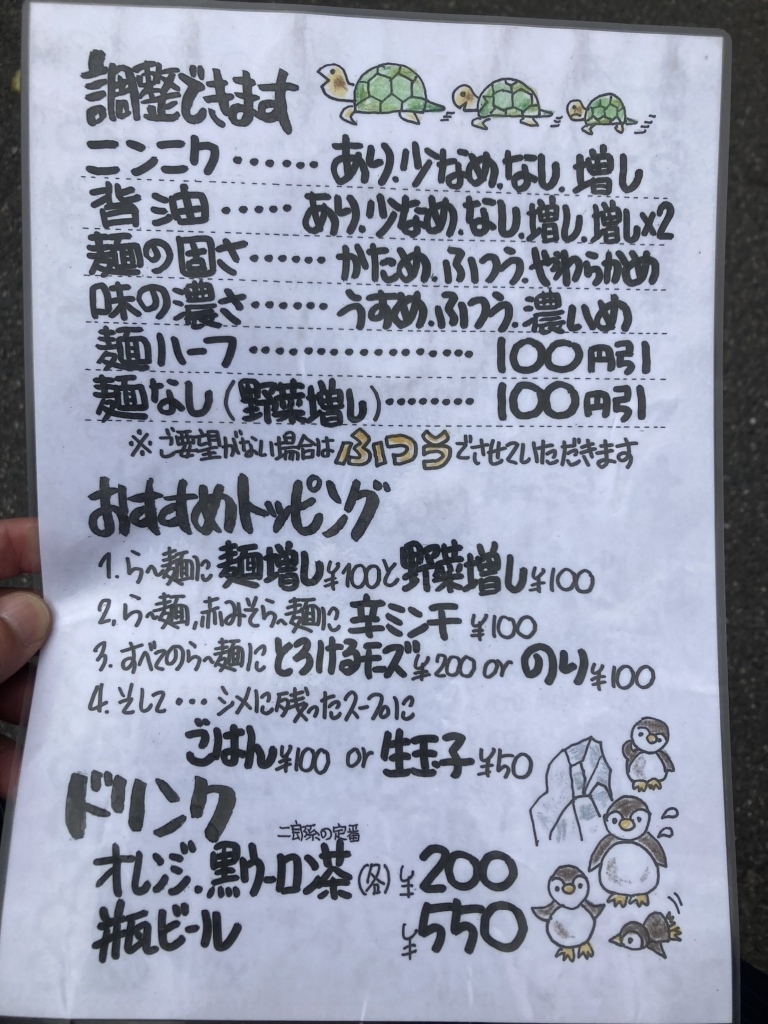 調整できます
ニンニク・・・・・・あり.少なめ.なし.増し
背油・・・・・あり.少なめ.なし.増し.増し×2
麺の固さ・・・・・・かため.ふつう.やわらかめ
味の濃さ・・・・・・うすめ.ふつう.濃いめ
麺ハーフ・・・・・・・・・・・・・・・・・100円引
麺なし(野菜増し)・・・・・・・100円引
※ご要望がない場合はふつうでさせていただきます
おすすめトッピング
1.ら〜麺に麺増し¥100と野菜増し¥100
2.ら〜麺,赤みそら〜麺に辛ミンチ¥100
3.すべてのら〜麺にとろけるチーズ¥200 or のり¥100
4.そして・・・シメに残ったスープに
ごはん¥100 or 生玉子¥50
ドリンク
二郎系の定番
オレンジ.黒ウーロン茶(各)¥200
瓶ビール ¥550